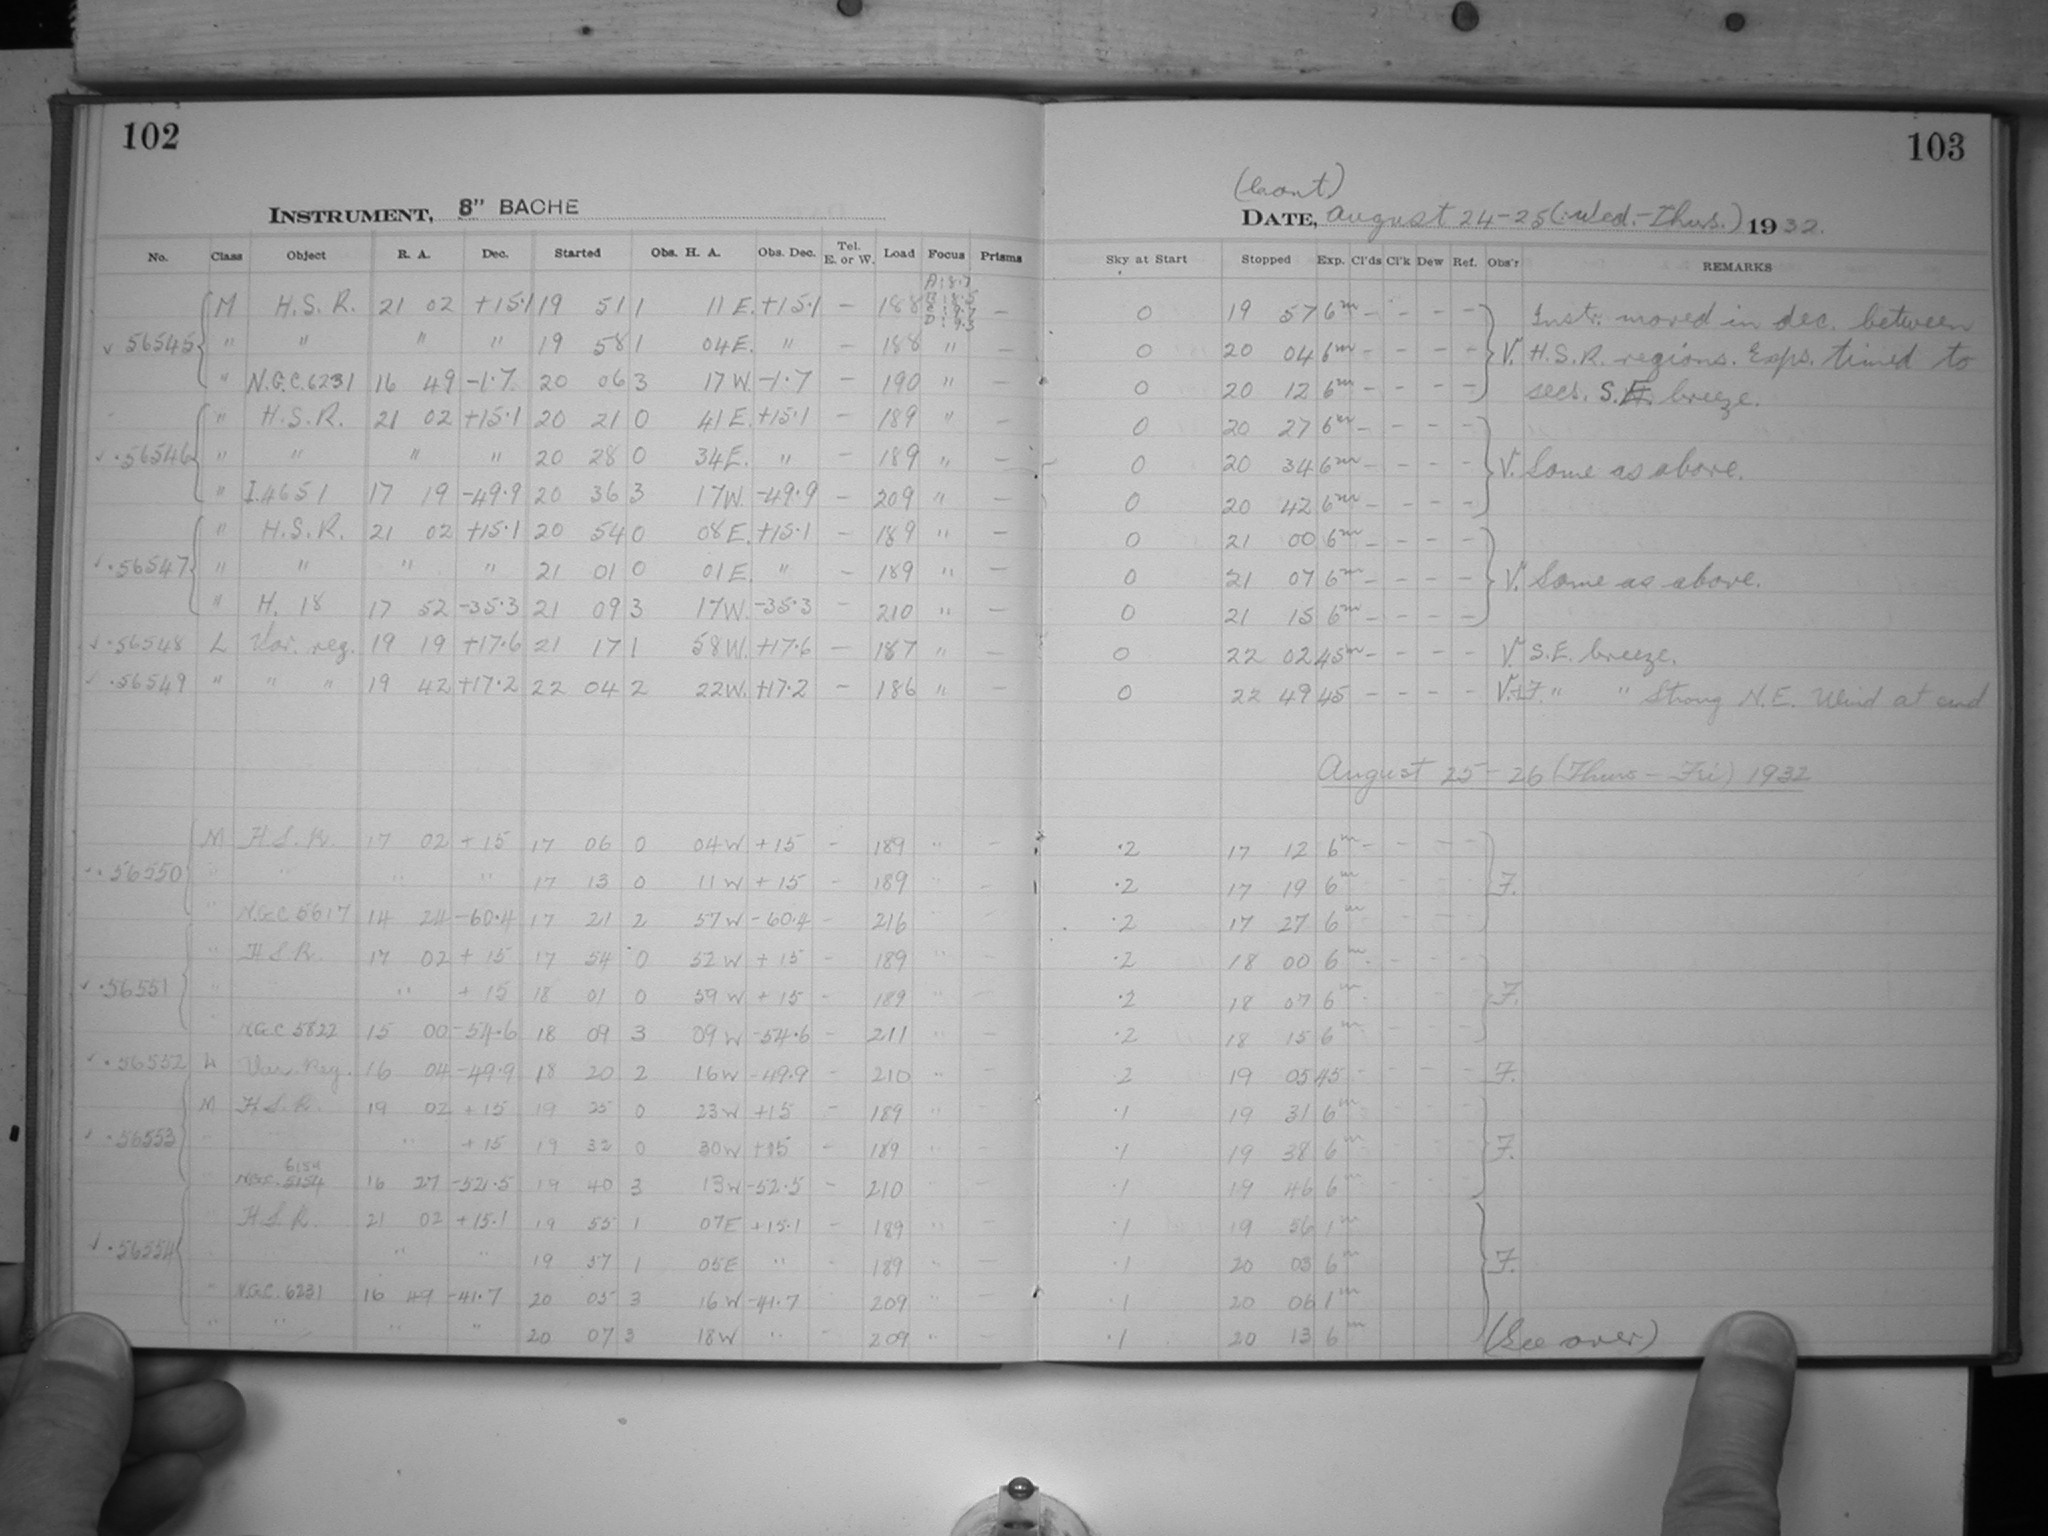 102
INSTRUMENT, 8" BACHE
No. Class Object R. A. Dec. Started Obs. H. A. Obs. Dec. Tel. E. or W. Load Focus Prisms
M H.S.R. 21 02 +15.1 19 51 1 11 E. +15.1 — 188 —
56545 " " " " 19 58 1 04 E. " — 188 " —
" N.G.C. 6231 16 49 -1.7 20 06 3 17 W -1.7 — 190 " —
" H.S.R. 21 02 +15.1 20 21 0 41 E. +15.1 — 189 " —
56546 " " " " 20 28 0 34 E. " — 189 " —
" I.4651 17 19 -49.9 20 36 3 17 W. -49.9 — 209 " —
" H.S.R. 21 02 +15.1 20 54 0 08 E. +15.1 — 189 " —
56547 " " " " 21 01 0 01 E. " — 189 " —
" H. 18 17 52 -35.3 21 09 3 17 W. -35.3 — 210 " —
56548 L Var. reg. 19 19 +17.6 21 17 1 58 W. +17.6 — 187 " —
56549 " " " 19 42 +17.2 22 04 2 22 W. +17.2 — 186 " —
M H.S.R. 17 02 +15 17 06 0 04 W +15 — 189 " —
56550 " " " " 17 13 0 11 W +15 — 189 " —
" N.G.C 5617 14 24 -60.4 17 21 2 57 W -60.4 — 216
" H.S.R. 17 02 +15 17 54 0 52 W +15 — 189 " —
56551 " " +15 18 01 0 59 W +15 — 189 " —
" N.G.C 5822 15 00 -54.6 18 09 3 09 W -54.6 — 211 " —
56552 L Var. Reg. 16 04 -49.9 18 20 2 16 W -49.9 — 210 " —
M H.S.R. 19 02 +15 19 25 0 23 W +15 — 189 " —
56553 " " +15 19 32 0 30 W +15 — 189 " —
" N.G.C. 6154 16 27 -52.5 19 40 3 13 W -52.5 — 210 —
" H.S.R. 21 02 +15.1 19 55 1 07 E +15.1 — 189 " —
56554 " " 19 57 1 05 E " — 189 " —
" N.G.C. 6231 16 49 -41.7 20 05 3 16 W -41.7 — 209 —
" " " " 20 07 3 18 W " — 209 " —
103
(Cont)
DATE, August 24-25 (Wed.-Thurs.) 1932.
Sky at Start Stopped Exp. Cl'ds Cl'k Dew Ref. Obs'r REMARKS
0 19 57 6m — — — — Instr. moved in dec. between
0 20 04 6m — — — — V. H.S.R. regions. Exps. timed to
0 20 12 6m — — — — secs. S.E. breeze.
0 20 27 6m — — — —
0 20 34 6m — — — — V. Same as above.
0 20 42 6m — — — —
0 21 00 6m — — — —
0 21 07 6m — — — — V. Same as above.
0 21 15 6m — — — —
0 22 02 45m — — — — V. S.E. breeze.
0 22 49 45 — — — — V.+F. " " Strong N.E. Wind at end
August 25-26 (Thurs-Fri) 1932
.2 17 12 6m — — — —
.2 17 19 6m F.
.2 17 27 6m
.2 18 00 6m
.2 18 07 6m F.
.2 18 15 6m
.2 19 05 45 F.
.1 19 31 6m
.1 19 38 6m F.
.1 19 46 6m
.1 19 56 1m
.1 20 03 6m F.
.1 20 06 1m
.1 20 13 6m (See over)